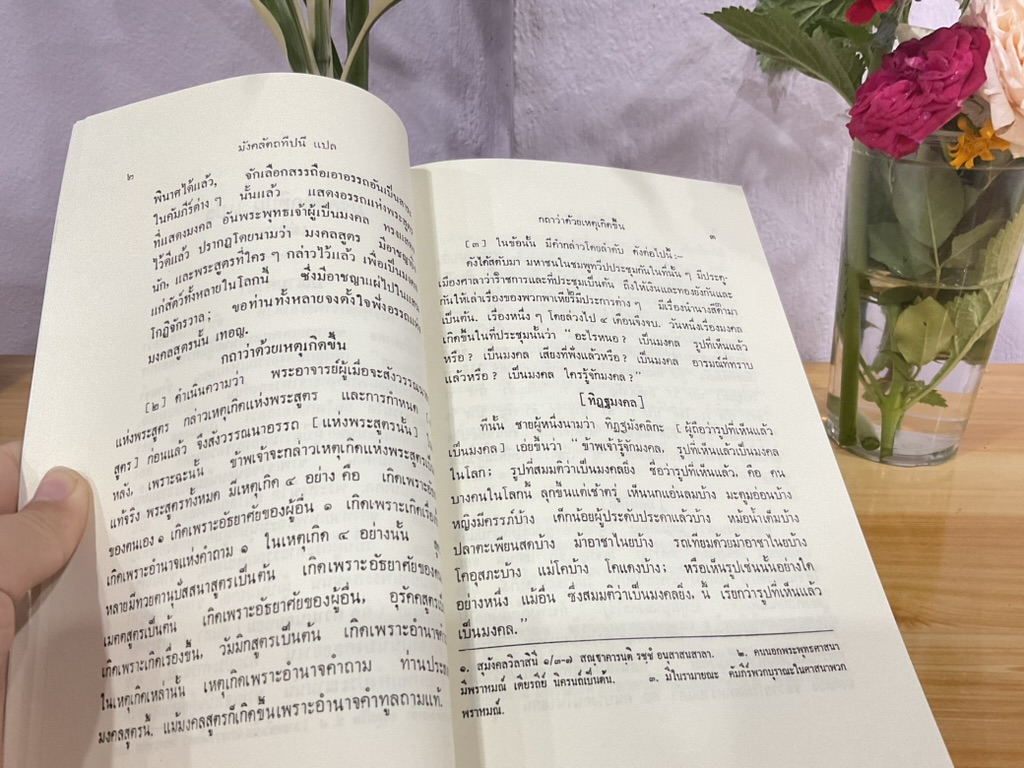 มังคลัตถทีปนี แปล
๒
พินาศได้แล้ว, จักเลือกสรรถือเอาอรรถอันเป็นสาระ
ในคัมภีร์ต่าง ๆ นั้นแล้ว แสดงอรรถแห่งพระสูตร
ที่แสดงมงคล อันพระพุทธเจ้าผู้เป็นมงคล ทรงแสดง
ไว้ดีแล้ว ปรากฏโดยนามว่า มงคลสูตร มีอาชญา
นัก, และพระสูตรที่ใคร ๆ กล่าวไว้แล้ว เพื่อเป็นมงคล
แก่สัตว์ทั้งหลายในโลกนี้ ซึ่งมีอาชญาแผ่ไปใน
โกฏิจักรวาล; ขอท่านทั้งหลายจงตั้งใจฟังอรรถแห่ง
มงคลสูตรนั้น เทอญ.
กถาว่าด้วยเหตุเกิดขึ้น
[๒] ดำเนินความว่า พระอาจารย์ผู้เมื่อจะสังวรรณนา
แห่งพระสูตร กล่าวเหตุเกิดแห่งพระสูตร และการกำหนด
สูตร] ก่อนแล้ว จึงสังวรรณนาอรรถ [แห่งพระสูตรนั้น]
หลัง, เพราะฉะนั้น ข้าพเจ้าจะกล่าวเหตุเกิดแห่งพระสูตร
แท้จริง พระสูตรทั้งหมด มีเหตุเกิด ๔ อย่าง คือ เกิดเพราะ
ของตนเอง ๑ เกิดเพราะอัธยาศัยของผู้อื่น ๑ เกิดเพราะเกิดเรื่อง
เกิดเพราะอำนาจแห่งคำถาม ๑ ในเหตุเกิด ๔ อย่างนั้น
หลายมีทวยตานุปัสสนาสูตรเป็นต้น เกิดเพราะอัธยาศัยของ
เมตตสูตรเป็นต้น เกิดเพราะอัธยาศัยของผู้อื่น, อุรัคคสูตร
เกิดเพราะเกิดเรื่องขึ้น, วัมมิกสูตรเป็นต้น เกิดเพราะอำนาจ
ในเหตุเกิดเหล่านั้น เหตุเกิดเพราะอำนาจคำถาม ท่านประ
มงคลสูตรนี้, แม้มงคลสูตรก็เกิดขึ้นเพราะอำนาจคำทูลถามแท้.
กถาว่าด้วยเหตุเกิดขึ้น
๓
[๓] ในข้อนั้น มีคำกล่าวโดยลำดับ ดังต่อไปนี้:–
ดังได้สดับมา มหาชนในชมพูทวีปประชุมกันในที่นั้น ๆ มีประตู-
เมืองศาลาว่าราชการและที่ประชุมเป็นต้น ถึงให้เงินและทองยังกันและ
กันให้เล่าเรื่องของพวกพาเหียรมีประการต่าง ๆ มีเรื่องนำนางสีดามา
เป็นต้น. เรื่องหนึ่ง ๆ โดยล่วงไป ๔ เดือนจึงจบ. วันหนึ่งเรื่องมงคล
เกิดขึ้นในที่ประชุมนั้นว่า “ อะไรหนอ? เป็นมงคล รูปที่เห็นแล้ว
หรือ? เป็นมงคล เสียงที่ฟังแล้วหรือ? เป็นมงคล อารมณ์ที่ทราบ
แล้วหรือ? เป็นมงคล ใครรู้จักมงคล?”
[ทิฏฐมงคล]
ทีนั้น ชายผู้หนึ่งนามว่า ทิฏฐมังคลิกะ [ผู้ถือว่ารูปที่เห็นแล้ว
เป็นมงคล] เอ่ยขึ้นว่า “ ข้าพเจ้ารู้จักมงคล, รูปที่เห็นแล้วเป็นมงคล
ในโลก; รูปที่สมมติว่าเป็นมงคลยิ่ง ชื่อว่ารูปที่เห็นแล้ว, คือ คน
บางคนในโลกนี้ ลุกขึ้นแต่เช้าตรู่ เห็นนกแอ่นลมบ้าง มะตูมอ่อนบ้าง
หญิงมีครรภ์บ้าง เด็กน้อยผู้ประดับประดาแล้วบ้าง หม้อน้ำเต็มบ้าง
ปลาตะเพียนสดบ้าง ม้าอาชาไนยบ้าง รถเทียมด้วยม้าอาชาไนยบ้าง
โคอุสภะบ้าง แม่โคบ้าง โคแดงบ้าง; หรือเห็นรูปเช่นนั้นอย่างใด
อย่างหนึ่ง แม้อื่น ซึ่งสมมติว่าเป็นมงคลยิ่ง, นี้ เรียกว่ารูปที่เห็นแล้ว
เป็นมงคล.”
๑. สุมังคลวิลาสินี ๑/๓-๗ ๒. คนนอกพระพุทธศาสนา
มีพราหมณ์ เดียรถีย์ นิครนถ์เป็นต้น. ๓. มีในรามายณะ คัมภีร์พวกบุราณะในศาสนาพวก
พราหมณ์.